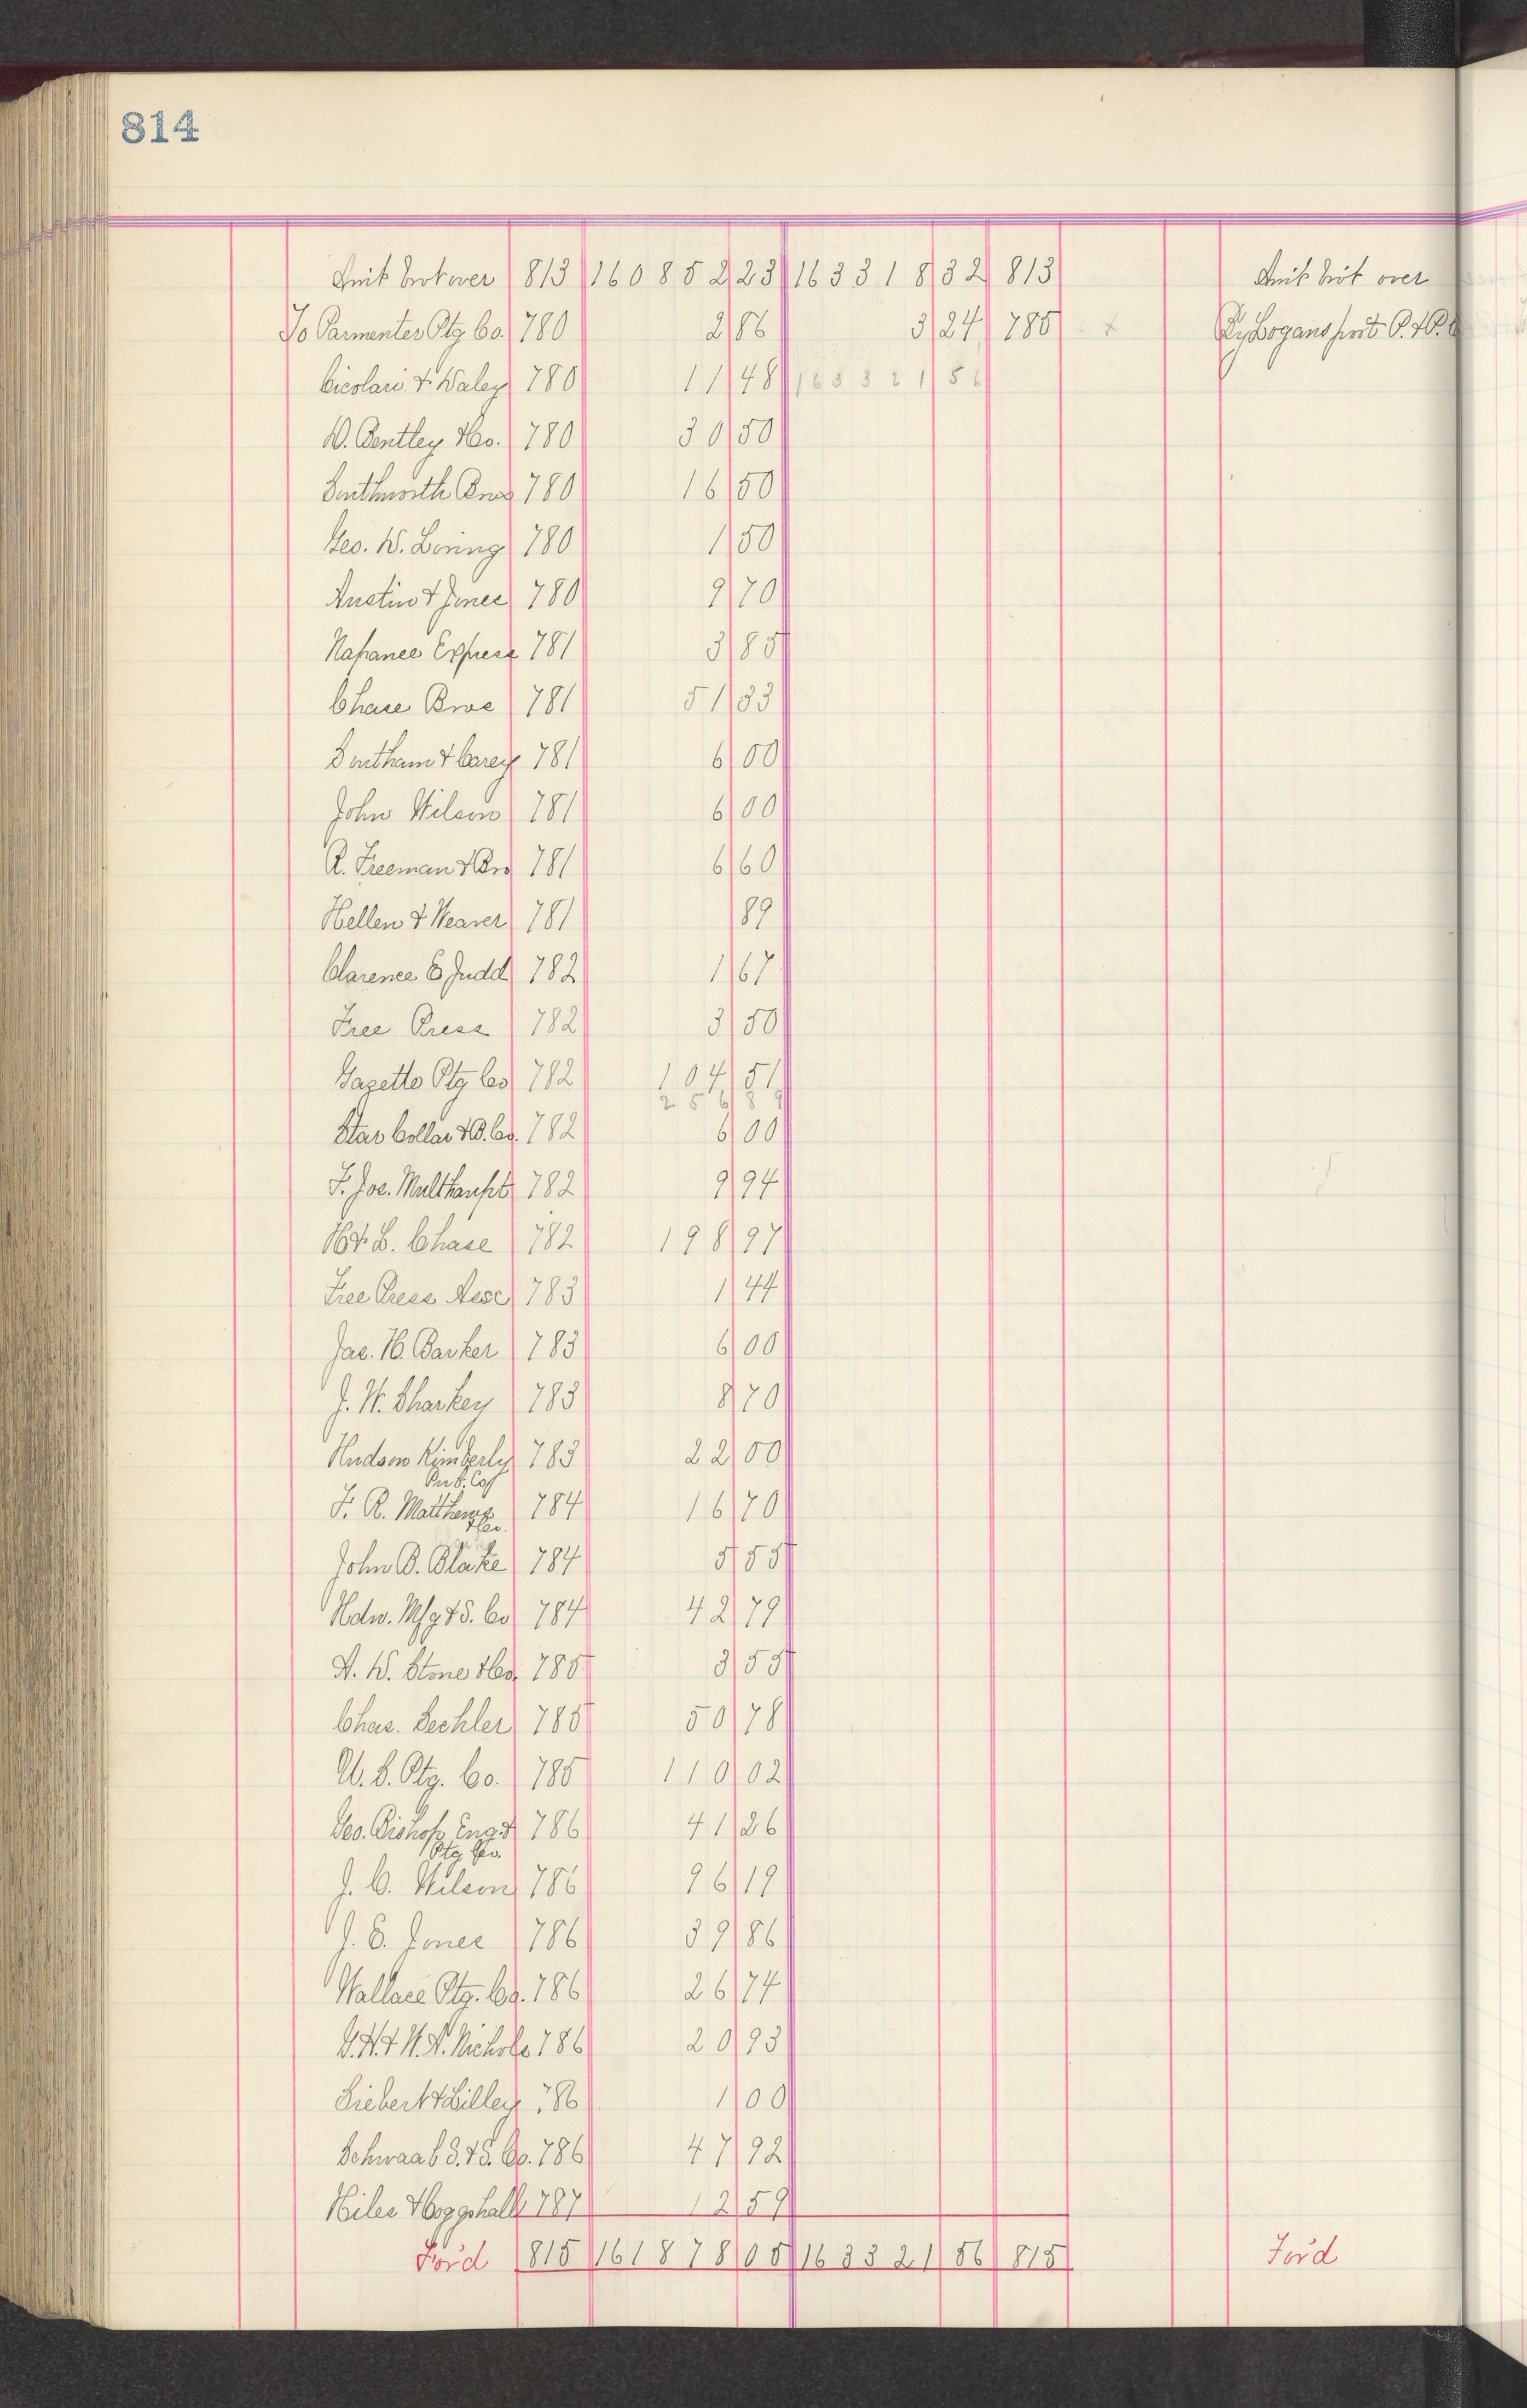 814
Amt brot over 813 160852 23 163318 32 813 Amt brot over
To Parmenter Ptg Co. 780 2 86 3 24 785 x By Logansport P. & P. C
& Waley 780 11 48 163321 56
W. Bentley & Co. 780 30 50
Bros 780 16 50
Geo. W. Loring 780 1 50
Austin & Jones 780 9 70
Napanee Express 781 3 85
Chase Bros 781 51 33
& Carey 781 6 00
John Wilson 781 6 00
R. Freeman & Bro 781 6 60
Hellen & Weaver 781 89
Clarence E Judd 782 1 67
Free Press 782 3 50
Gazette Ptg Co 782 104 51
256 89
Star Collar & B. Co. 782 6 00
F. Jos. Multhaupt 782 9 94
H. L. Chase 782 198 97
Free Press Assc 783 1 44
Jas. H. Barker 783 6 00
J. W. Sharkey 783 8 70
Hudson Kimberly 783 22 00
Pub. Co
F. R. Matthews 784 16 70
& Co.
John B. Blake 784 5 55
Hdw. Mfg & S. Co 784 42 79
A. W. Stone & Co. 785 3 55
Chas. Sechler 785 50 78
U. S. Ptg. Co. 785 110 02
Geo. Bishop Eng & 786 41 26
Ptg Co.
J. C. Wilson 786 96 19
J. E. Jones 786 39 86
Wallace Ptg. Co. 786 26 74
Nichols 786 20 93
Siebert & Lilley 786 1 00
Schwaab S. & S. Co. 786 47 92
Hiles & Coggshall 787 12 59
For'd 815 161878 05 163321 56 815 For'd